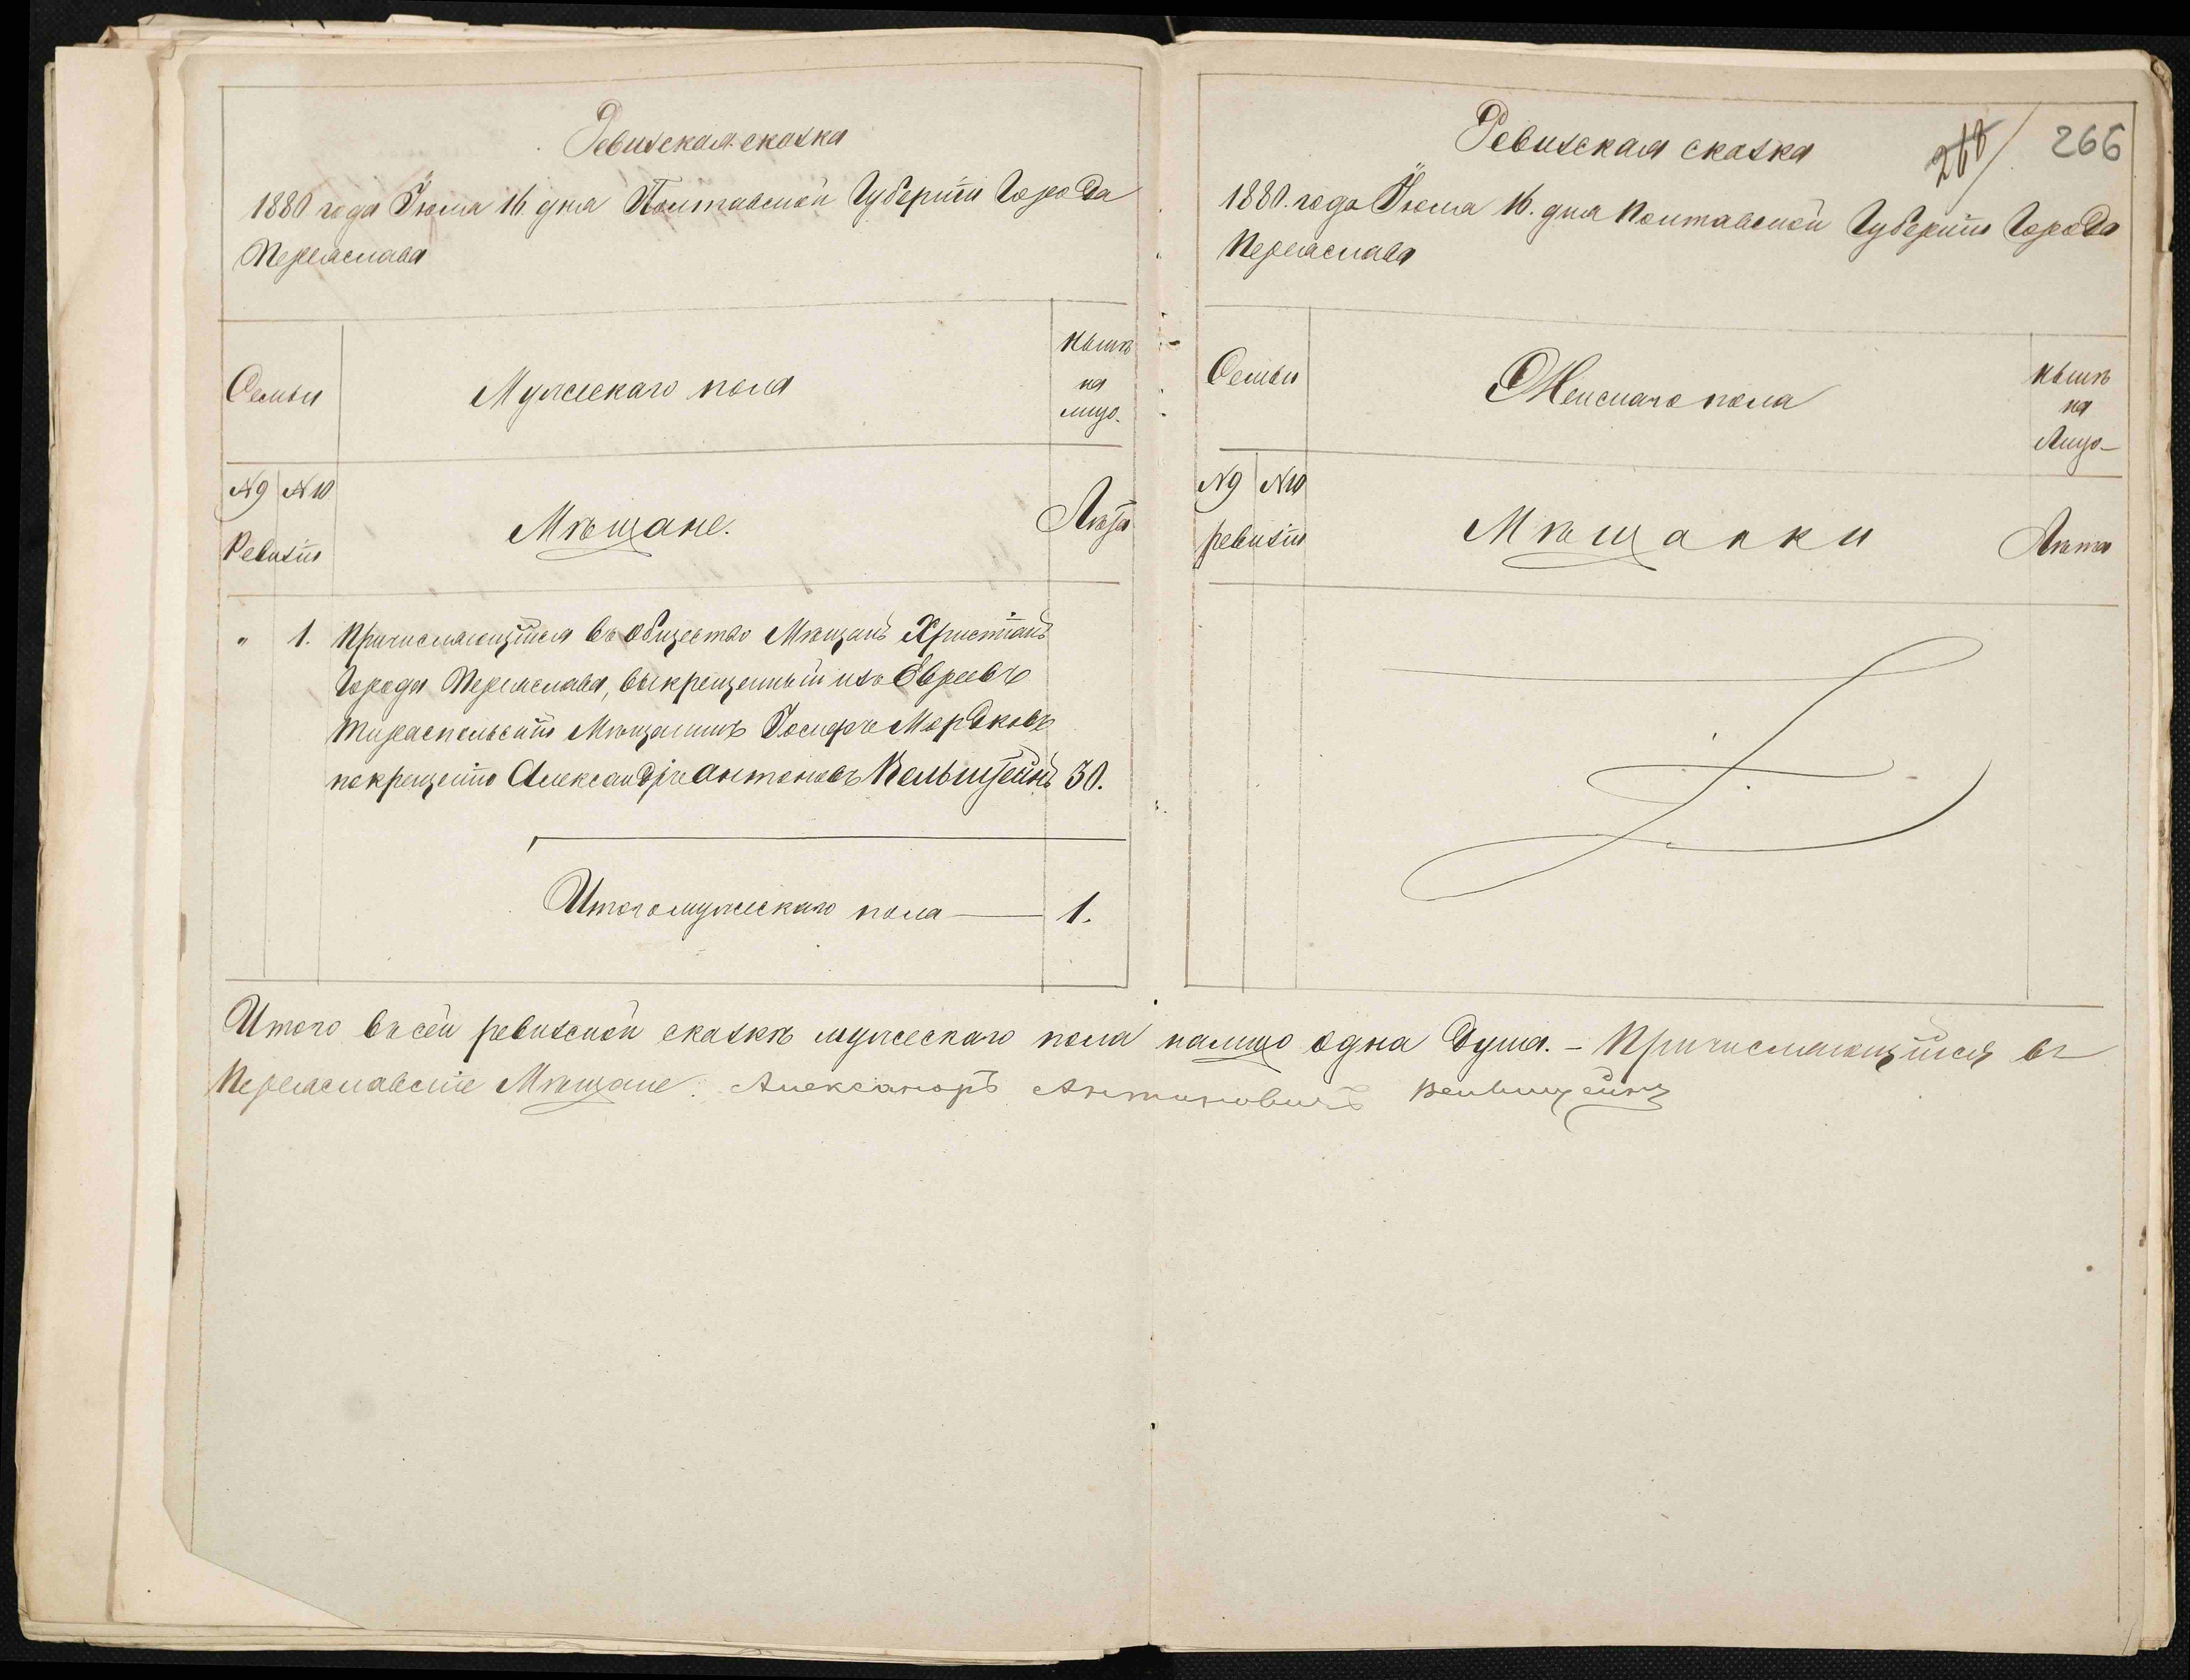 Ревизская сказка
1880 года Іюля 16 дня Полтавской Губерніи Города
Переяслава
Семьи
Мужескаго пола
Нынѣ
на
лицо.
№9 №10
Ревизіи
Мѣщане.
Лѣта
" 1. Причисляющійся въ общество Мѣщанъ Христіанъ
Города Переяслава, выкрещенный изъ Евреевъ
Тираспольскій Мѣщанинъ Іосифъ Мордковъ
покрещенію Александръ Антоновъ Вельштейнъ 30.
Итого мужескаго пола — 1.
Ревизская сказка
268 / 266
1880. года Іюля 16. дня Полтавской Губерніи Города
Переяслава
Семьи
Женскаго пола
Нынѣ
на
Лицо
№9 №10
ревизіи
Мѣщанки
Лѣта
Итого въ сей ревизской сказкѣ мужескаго пола на лицо одна душа. — Причисляющійся въ
Переяславскіе Мѣщане: Александръ Антоновичъ